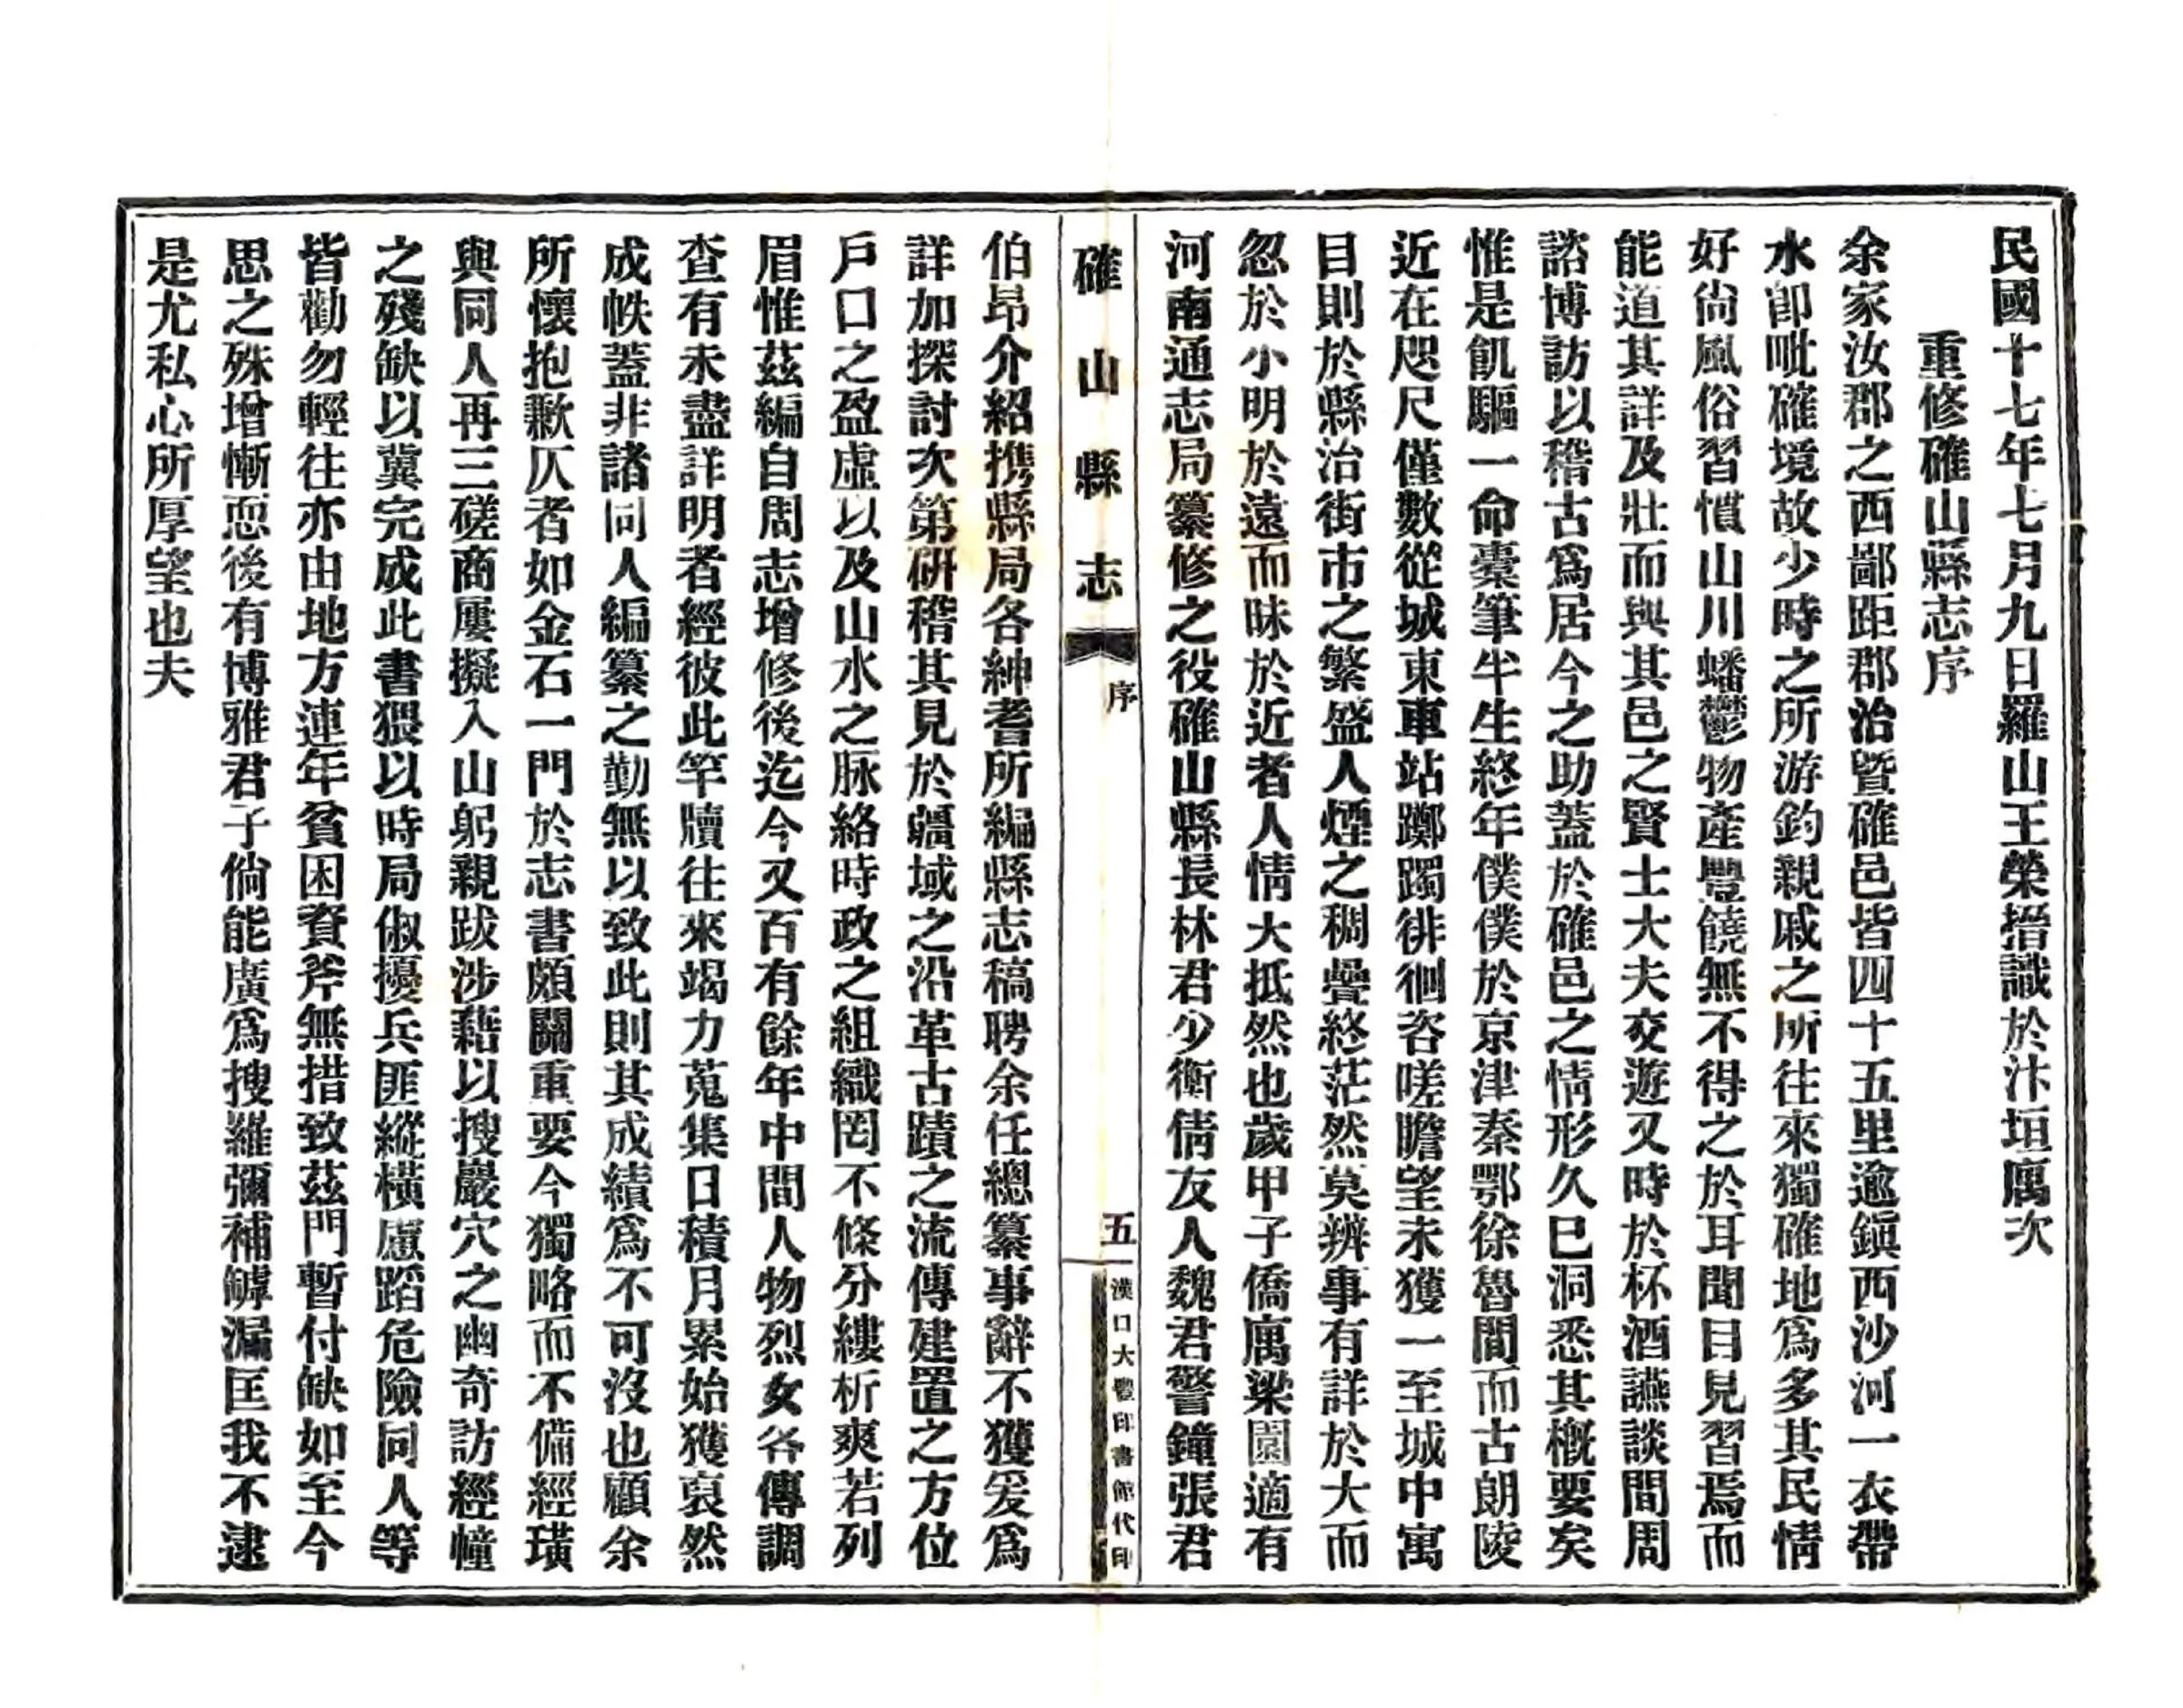 民國十七年七月九日羅山王榮搢識於汴垣寓次
重修確山縣志序
余家汝郡之西鄙距郡治暨確邑皆四十五里逾鎭西沙河一衣帶
水卽毗確境故少時之所游釣親戚之所往來獨確地爲多其民情
好尙風俗習慣山川蟠鬱物產豐饒無不得之於耳聞目見習焉而
能道其詳及壯而與其邑之賢士大夫交遊又時於杯酒讌談間周
諮博訪以稽古爲居今之助蓋於確邑之情形久已洞悉其槪要矣
惟是飢驅一命橐筆半生終年僕僕於京津秦鄂徐魯間而古朗陵
近在咫尺僅數從城東車站躑躅徘徊咨嗟瞻望未獲一至城中寓
目則於縣治街市之繁盛人煙之稠疊終茫然莫辨事有詳於大而
忽於小明於遠而昧於近者人情大抵然也歲甲子僑寓梁園適有
河南通志局纂修之役確山縣長林君少衡倩友人魏君警鐘張君
確山縣志
序
五
漢口大豐印書館代印
伯昂介紹携縣局各紳耆所編縣志稿聘余任總纂事辭不獲爰爲
詳加探討次第硏稽其見於疆域之沿革古蹟之流傳建置之方位
戶口之盈虛以及山水之脉絡時政之組織罔不條分縷析爽若列
眉惟茲編自周志增修後迄今又百有餘年中間人物烈女各傳調
查有未盡詳明者經彼此竿牘往來竭力蒐集日積月累始獲裒然
成帙蓋非諸同人編纂之勤無以致此則其成績爲不可沒也顧余
所懷抱歉仄者如金石一門於志書頗關重要今獨略而不備經璜
與同人再三磋商屢擬入山躬親跋涉藉以搜巖穴之幽奇訪經幢
之殘缺以冀完成此書猥以時局俶擾兵匪縱橫慮蹈危險同人等
皆勸勿輕往亦由地方連年貧困資斧無措致茲門暫付缺如至今
思之殊增慚恧後有博雅君子倘能廣爲搜羅彌補罅漏匡我不逮
是尤私心所厚望也夫